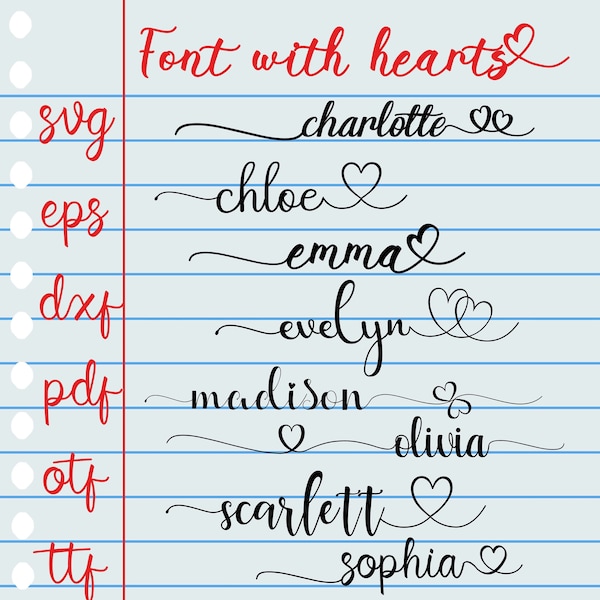 Font with hearts
svg
eps
dxf
pdf
otf
ttf
charlotte
chloe
emma
evelyn
madison
olivia
scarlett
sophia